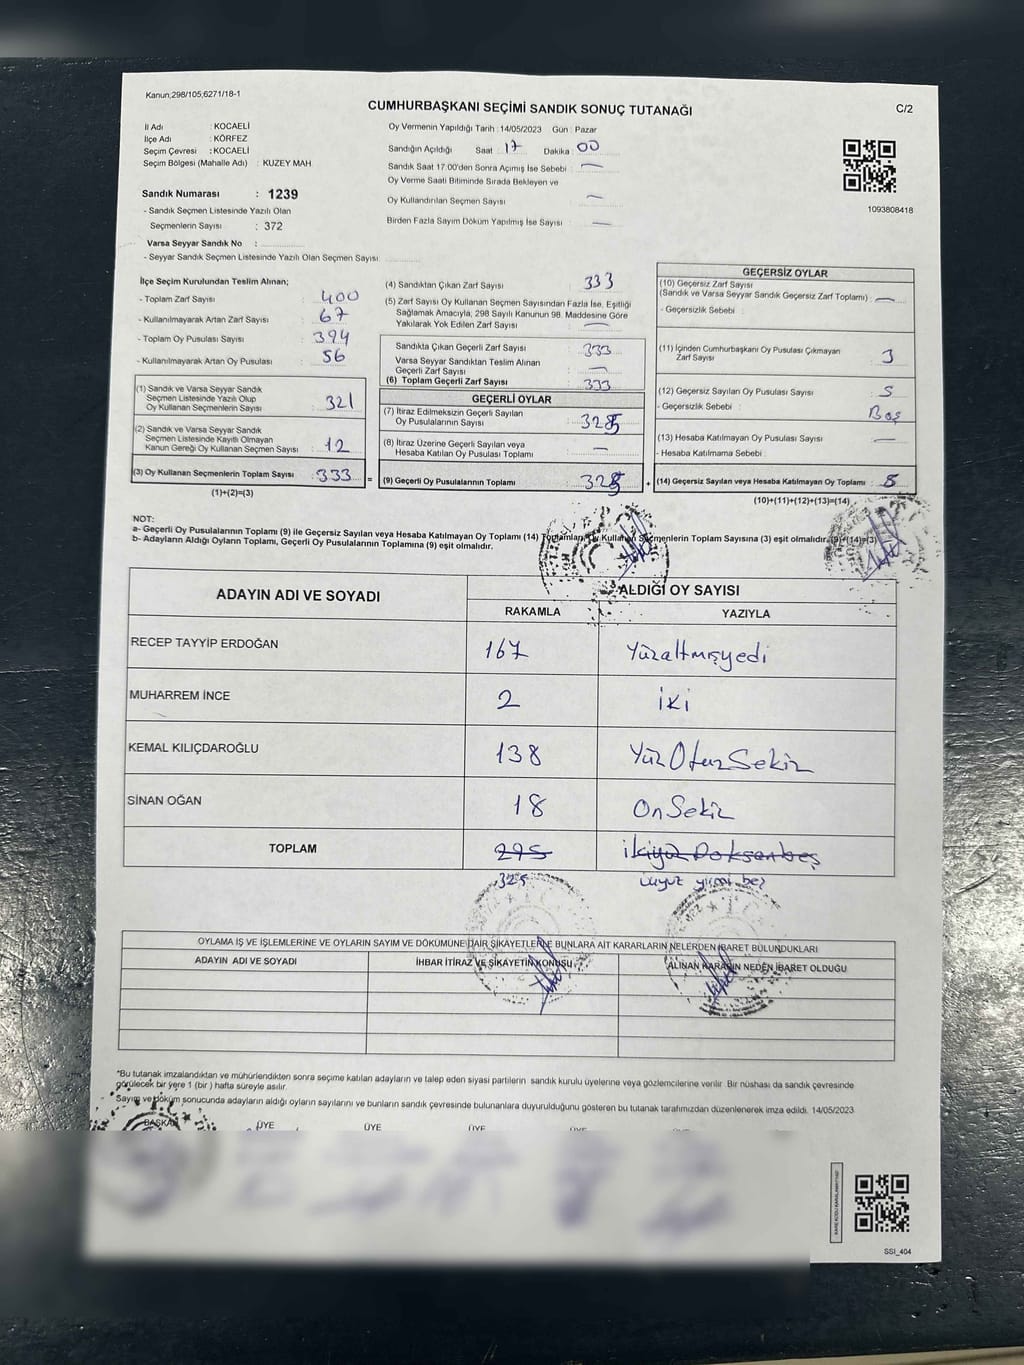 Kanun;298/105,6271/18-1
CUMHURBAŞKANI SEÇİMİ SANDIK SONUÇ TUTANAĞI
C/2
İl Adı : KOCAELİ
İlçe Adı : KÖRFEZ
Seçim Çevresi : KOCAELİ
Seçim Bölgesi (Mahalle Adı) : KUZEY MAH
Sandık Numarası : 1239
- Sandık Seçmen Listesinde Yazılı Olan
Seçmenlerin Sayısı : 372
Varsa Seyyar Sandık No :
- Seyyar Sandık Seçmen Listesinde Yazılı Olan Seçmen Sayısı:
Oy Vermenin Yapıldığı Tarih : 14/05/2023 Gün : Pazar
Sandığın Açıldığı Saat 17 Dakika 00
Sandık Saat 17:00'den Sonra Açımış İse Sebebi : —
Oy Verme Saati Bitiminde Sırada Bekleyen ve
Oy Kullandırılan Seçmen Sayısı —
Birden Fazla Sayım Döküm Yapılmış İse Sayısı : —
1093808418
İlçe Seçim Kurulundan Teslim Alınan;
- Toplam Zarf Sayısı : 400
- Kullanılmayarak Artan Zarf Sayısı : 67
- Toplam Oy Pusulası Sayısı : 394
- Kullanılmayarak Artan Oy Pusulası : 56
(1) Sandık ve Varsa Seyyar Sandık
Seçmen Listesinde Yazılı Olup
Oy Kullanan Seçmenlerin Sayısı : 321
(2) Sandık ve Varsa Seyyar Sandık
Seçmen Listesinde Kayıtlı Olmayan
Kanun Gereği Oy Kullanan Seçmen Sayısı : 12
(3) Oy Kullanan Seçmenlerin Toplam Sayısı : 333
(1)+(2)=(3)
(4) Sandıktan Çıkan Zarf Sayısı : 333
(5) Zarf Sayısı Oy Kullanan Seçmen Sayısından Fazla İse, Eşitliği
Sağlamak Amacıyla, 298 Sayılı Kanunun 98. Maddesine Göre
Yakılarak Yok Edilen Zarf Sayısı : —
Sandıkta Çıkan Geçerli Zarf Sayısı : 333
Varsa Seyyar Sandıktan Teslim Alınan
Geçerli Zarf Sayısı : —
(6) Toplam Geçerli Zarf Sayısı : 333
GEÇERLİ OYLAR
(7) İtiraz Edilmeksizin Geçerli Sayılan
Oy Pusulalarının Sayısı : 325
(8) İtiraz Üzerine Geçerli Sayılan veya
Hesaba Katılan Oy Pusulası Toplamı : —
(9) Geçerli Oy Pusulalarının Toplamı : 325
GEÇERSİZ OYLAR
(10) Geçersiz Zarf Sayısı
(Sandık ve Varsa Seyyar Sandık Geçersiz Zarf Toplamı) : —
- Geçersizlik Sebebi :
(11) İçinden Cumhurbaşkanı Oy Pusulası Çıkmayan
Zarf Sayısı : 3
(12) Geçersiz Sayılan Oy Pusulası Sayısı : 5
- Geçersizlik Sebebi : Boş
(13) Hesaba Katılmayan Oy Pusulası Sayısı : —
- Hesaba Katılmama Sebebi :
(14) Geçersiz Sayılan veya Hesaba Katılmayan Oy Toplamı : 8
(10)+(11)+(12)+(13)=(14)
NOT:
a- Geçerli Oy Pusulalarının Toplamı (9) ile Geçersiz Sayılan veya Hesaba Katılmayan Oy Toplamı (14) Toplamları, Oy Kullanan Seçmenlerin Toplam Sayısına (3) eşit olmalıdır.(9)+(14)=(3)
b- Adayların Aldığı Oyların Toplamı, Geçerli Oy Pusulalarının Toplamına (9) eşit olmalıdır.
ADAYIN ADI VE SOYADI
ALDIĞI OY SAYISI
RAKAMLA YAZIYLA
RECEP TAYYİP ERDOĞAN 167 Yüzaltmışyedi
MUHARREM İNCE 2 iki
KEMAL KILIÇDAROĞLU 138 YüzOtuzSekiz
SİNAN OĞAN 18 OnSekiz
TOPLAM 295 ikiyüzDoksanbeş
325 üçyüz yirmi beş
OYLAMA İŞ VE İŞLEMLERİNE VE OYLARIN SAYIM VE DÖKÜMÜNE DAİR ŞİKAYETLERLE BUNLARA AİT KARARLARIN NELERDEN İBARET BULUNDUKLARI
ADAYIN ADI VE SOYADI İHBAR İTİRAZ VE ŞİKAYETİN KONUSU ALINAN KARARIN NEDEN İBARET OLDUĞU
*Bu tutanak imzalandıktan ve mühürlendikten sonra seçime katılan adayların ve talep eden siyasi partilerin sandık kurulu üyelerine veya gözlemcilerine verilir. Bir nüshası da sandık çevresinde
görülecek bir yere 1 (bir) hafta süreyle asılır.
Sayım ve döküm sonucunda adayların aldığı oyların sayılarını ve bunların sandık çevresinde bulunanlara duyurulduğunu gösteren bu tutanak tarafımızdan düzenlenerek imza edildi. 14/05/2023
BAŞKAN ÜYE ÜYE ÜYE ÜYE ÜYE
SSİ_404